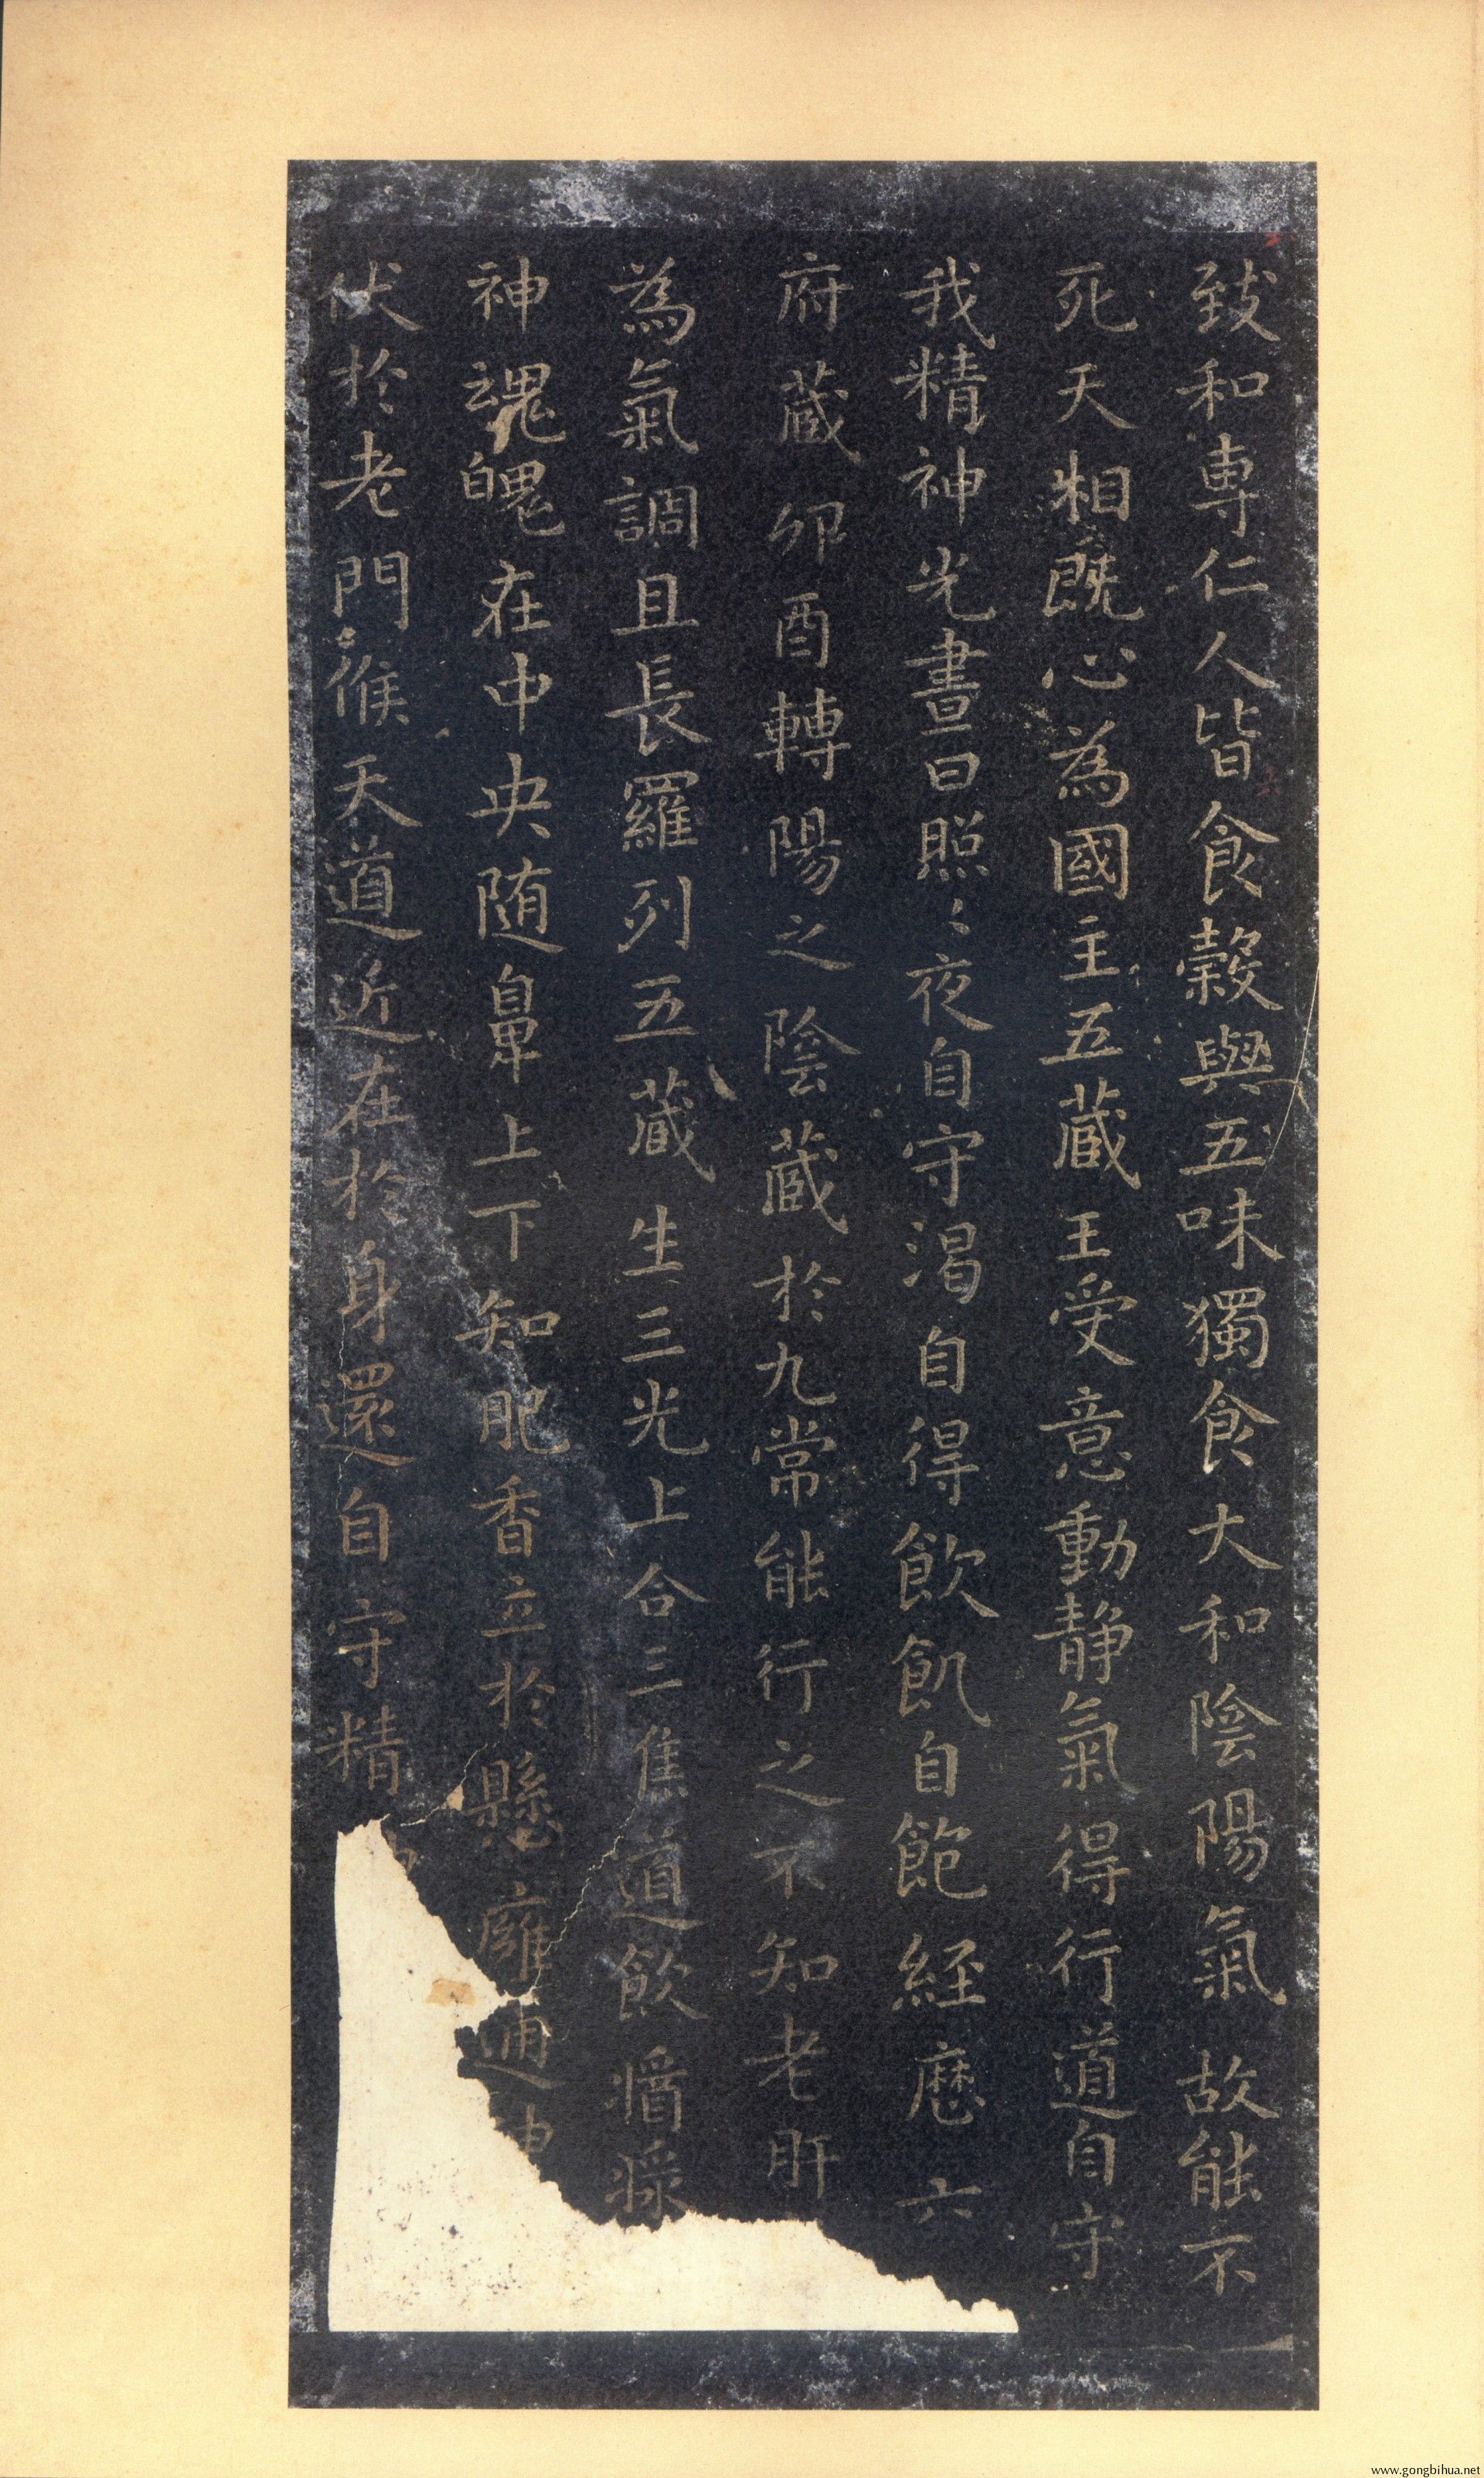 致和專仁人皆食穀與五味獨食大和陰陽氣故能不
死天相既心為國主五藏王受意動靜氣得行道自守
我精神光晝日照〻夜自守渴自得飲飢自飽経歷六
府藏卯酉轉陽之陰藏於九常能行之不知老肝
為氣調且長羅列五藏生三光上合三焦道飲
神魂魄在中央随鼻上下知肥香立於懸廱通神
伏於老門候天道近在於身還自守精
www.gongbihua.net